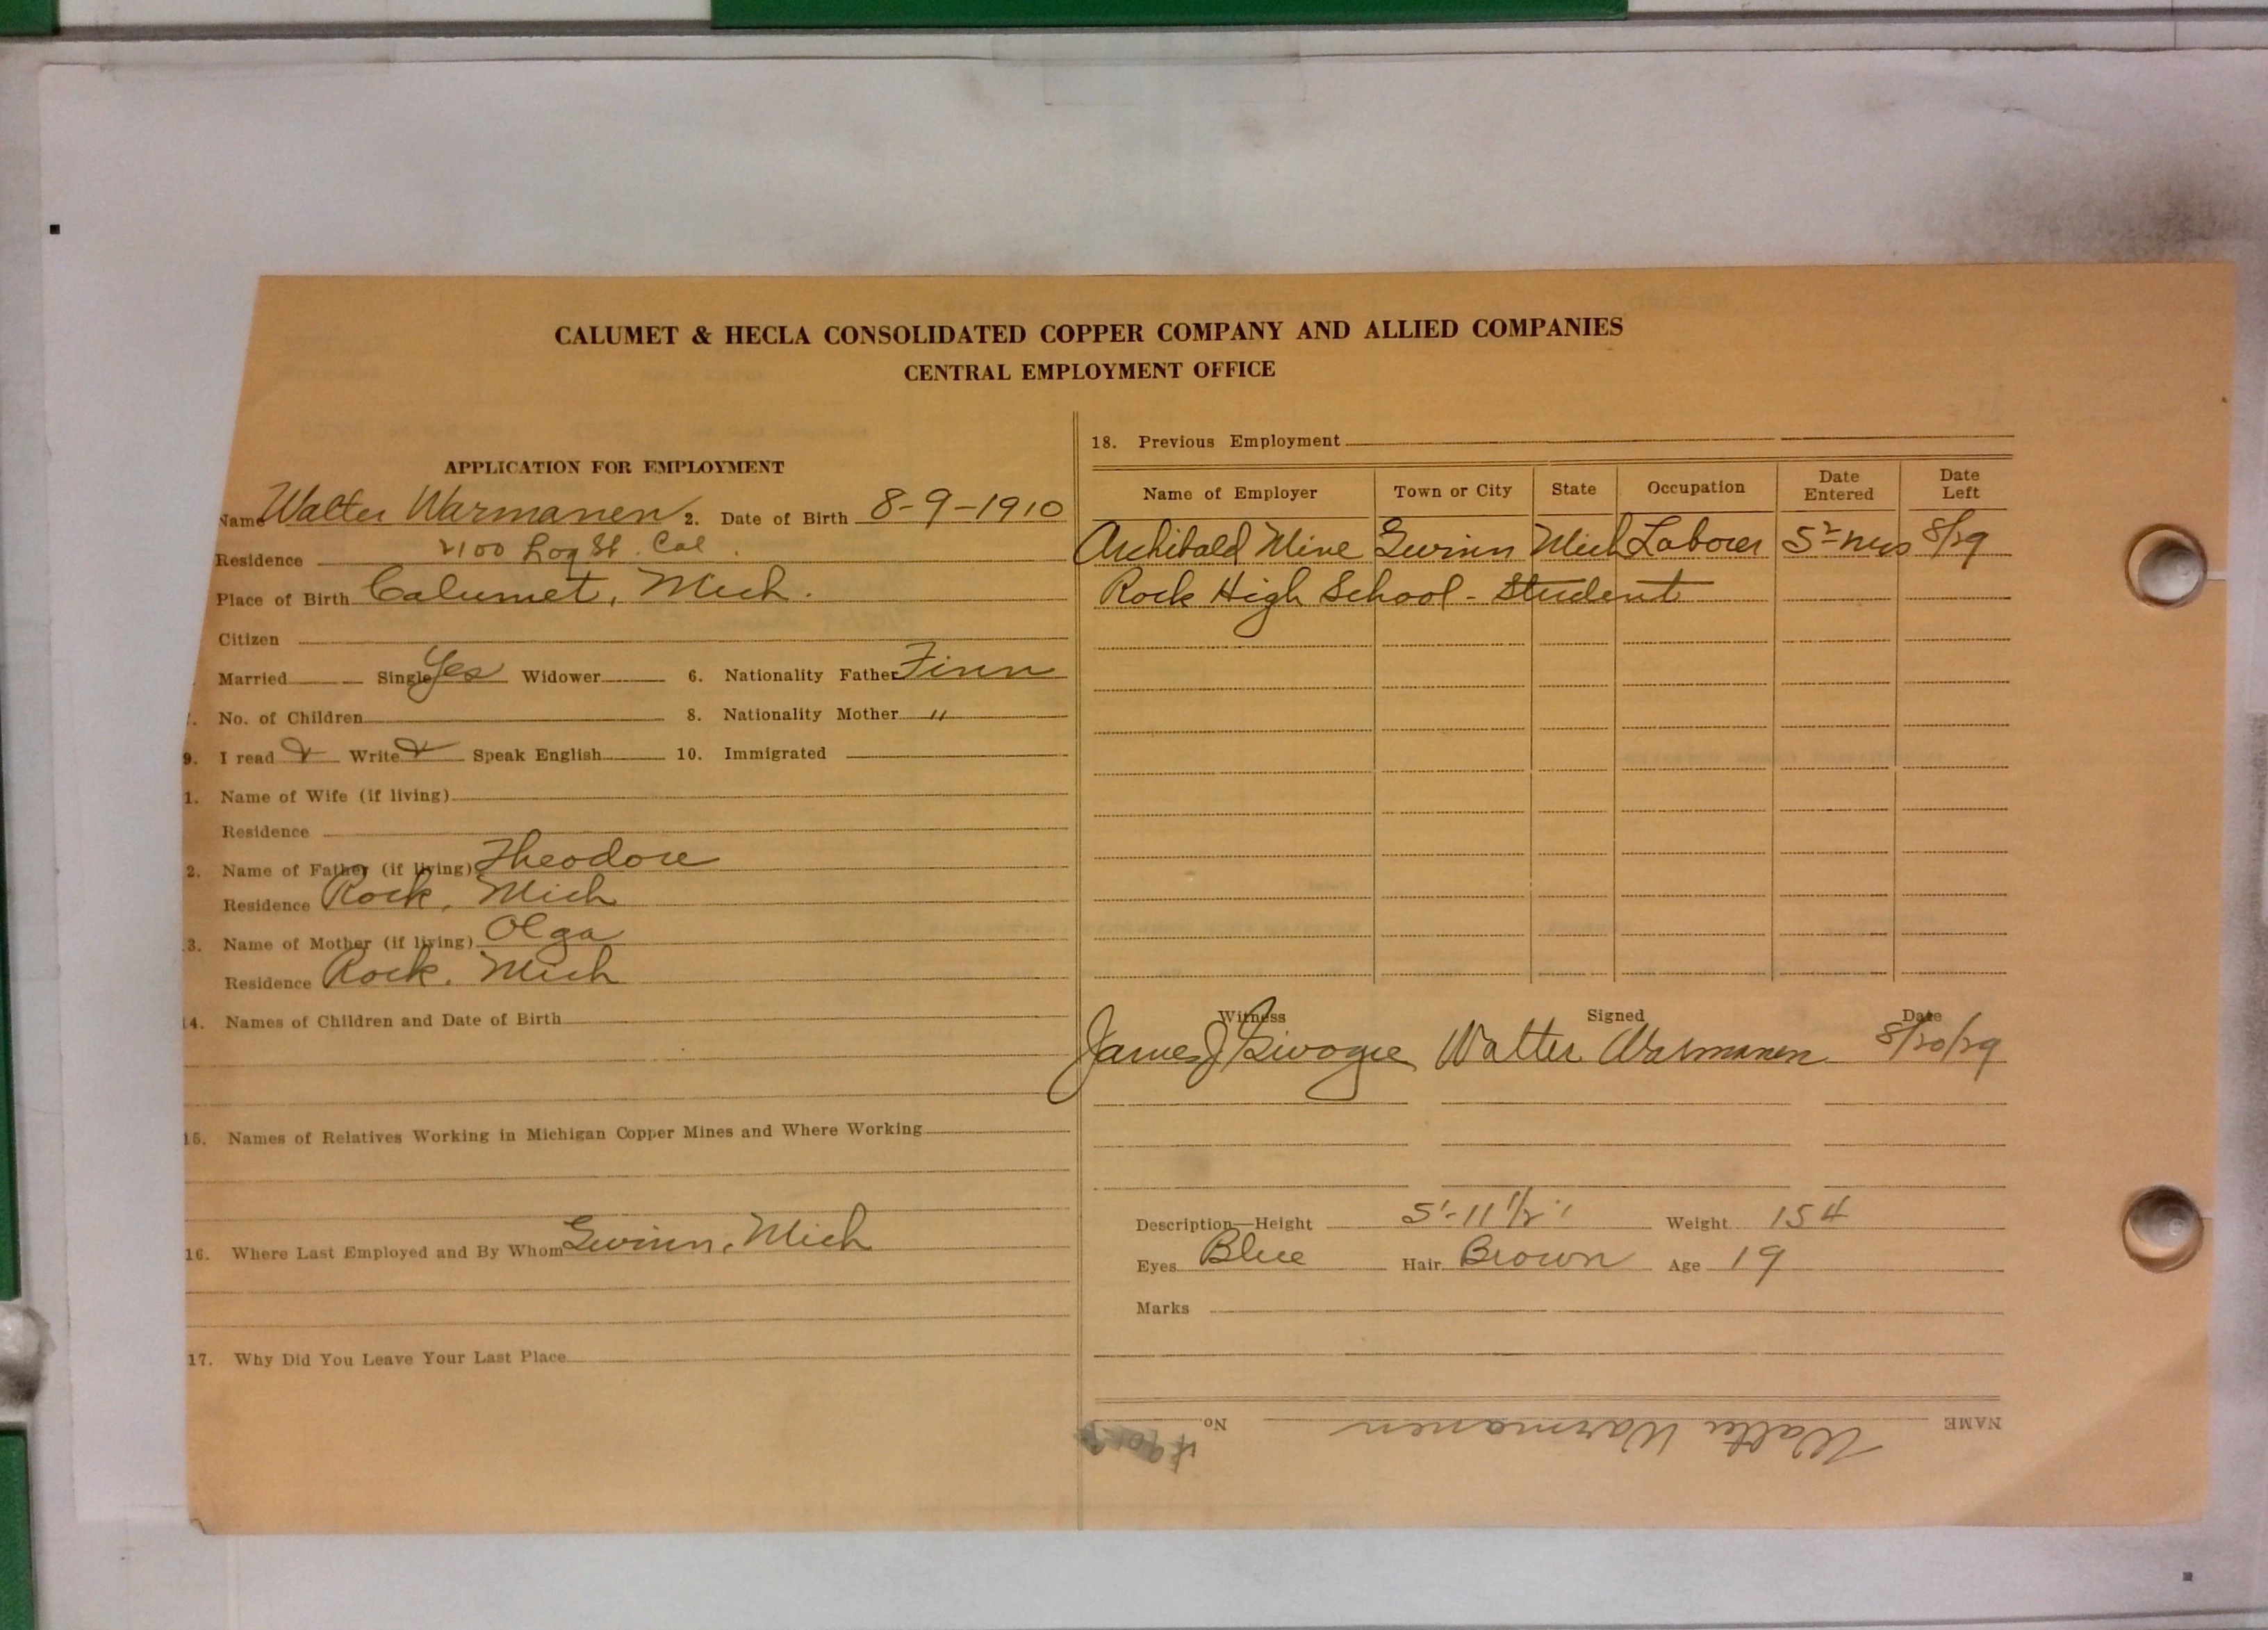 CALUMET & HECLA CONSOLIDATED COPPER COMPANY AND ALLIED COMPANIES
CENTRAL EMPLOYMENT OFFICE
APPLICATION FOR EMPLOYMENT
Name Walter Warmanen 2. Date of Birth 8-9-1910
Residence 2100 Log St. Cal.
Place of Birth Calumet, Mich.
Citizen
Married Single Yes Widower 6. Nationality Father Finn
No. of Children 8. Nationality Mother "
9. I read Write Speak English 10. Immigrated
1. Name of Wife (if living)
Residence
2. Name of Father (if living) Theodore
Residence Rock, Mich
3. Name of Mother (if living) Olga
Residence Rock, Mich
14. Names of Children and Date of Birth
15. Names of Relatives Working in Michigan Copper Mines and Where Working
16. Where Last Employed and By Whom Gwinn, Mich
17. Why Did You Leave Your Last Place
18. Previous Employment
Name of Employer Town or City State Occupation Date Entered Date Left
Archibald Mine Gwinn Mich Laborer 8/29
Rock High School - Student
Witness Signed Date
James J Walter Warmanen 8/20/29
Description—Height 5'-11 1/2" Weight 154
Eyes Blue Hair Brown Age 19
Marks
NAME Walter Warmanen No